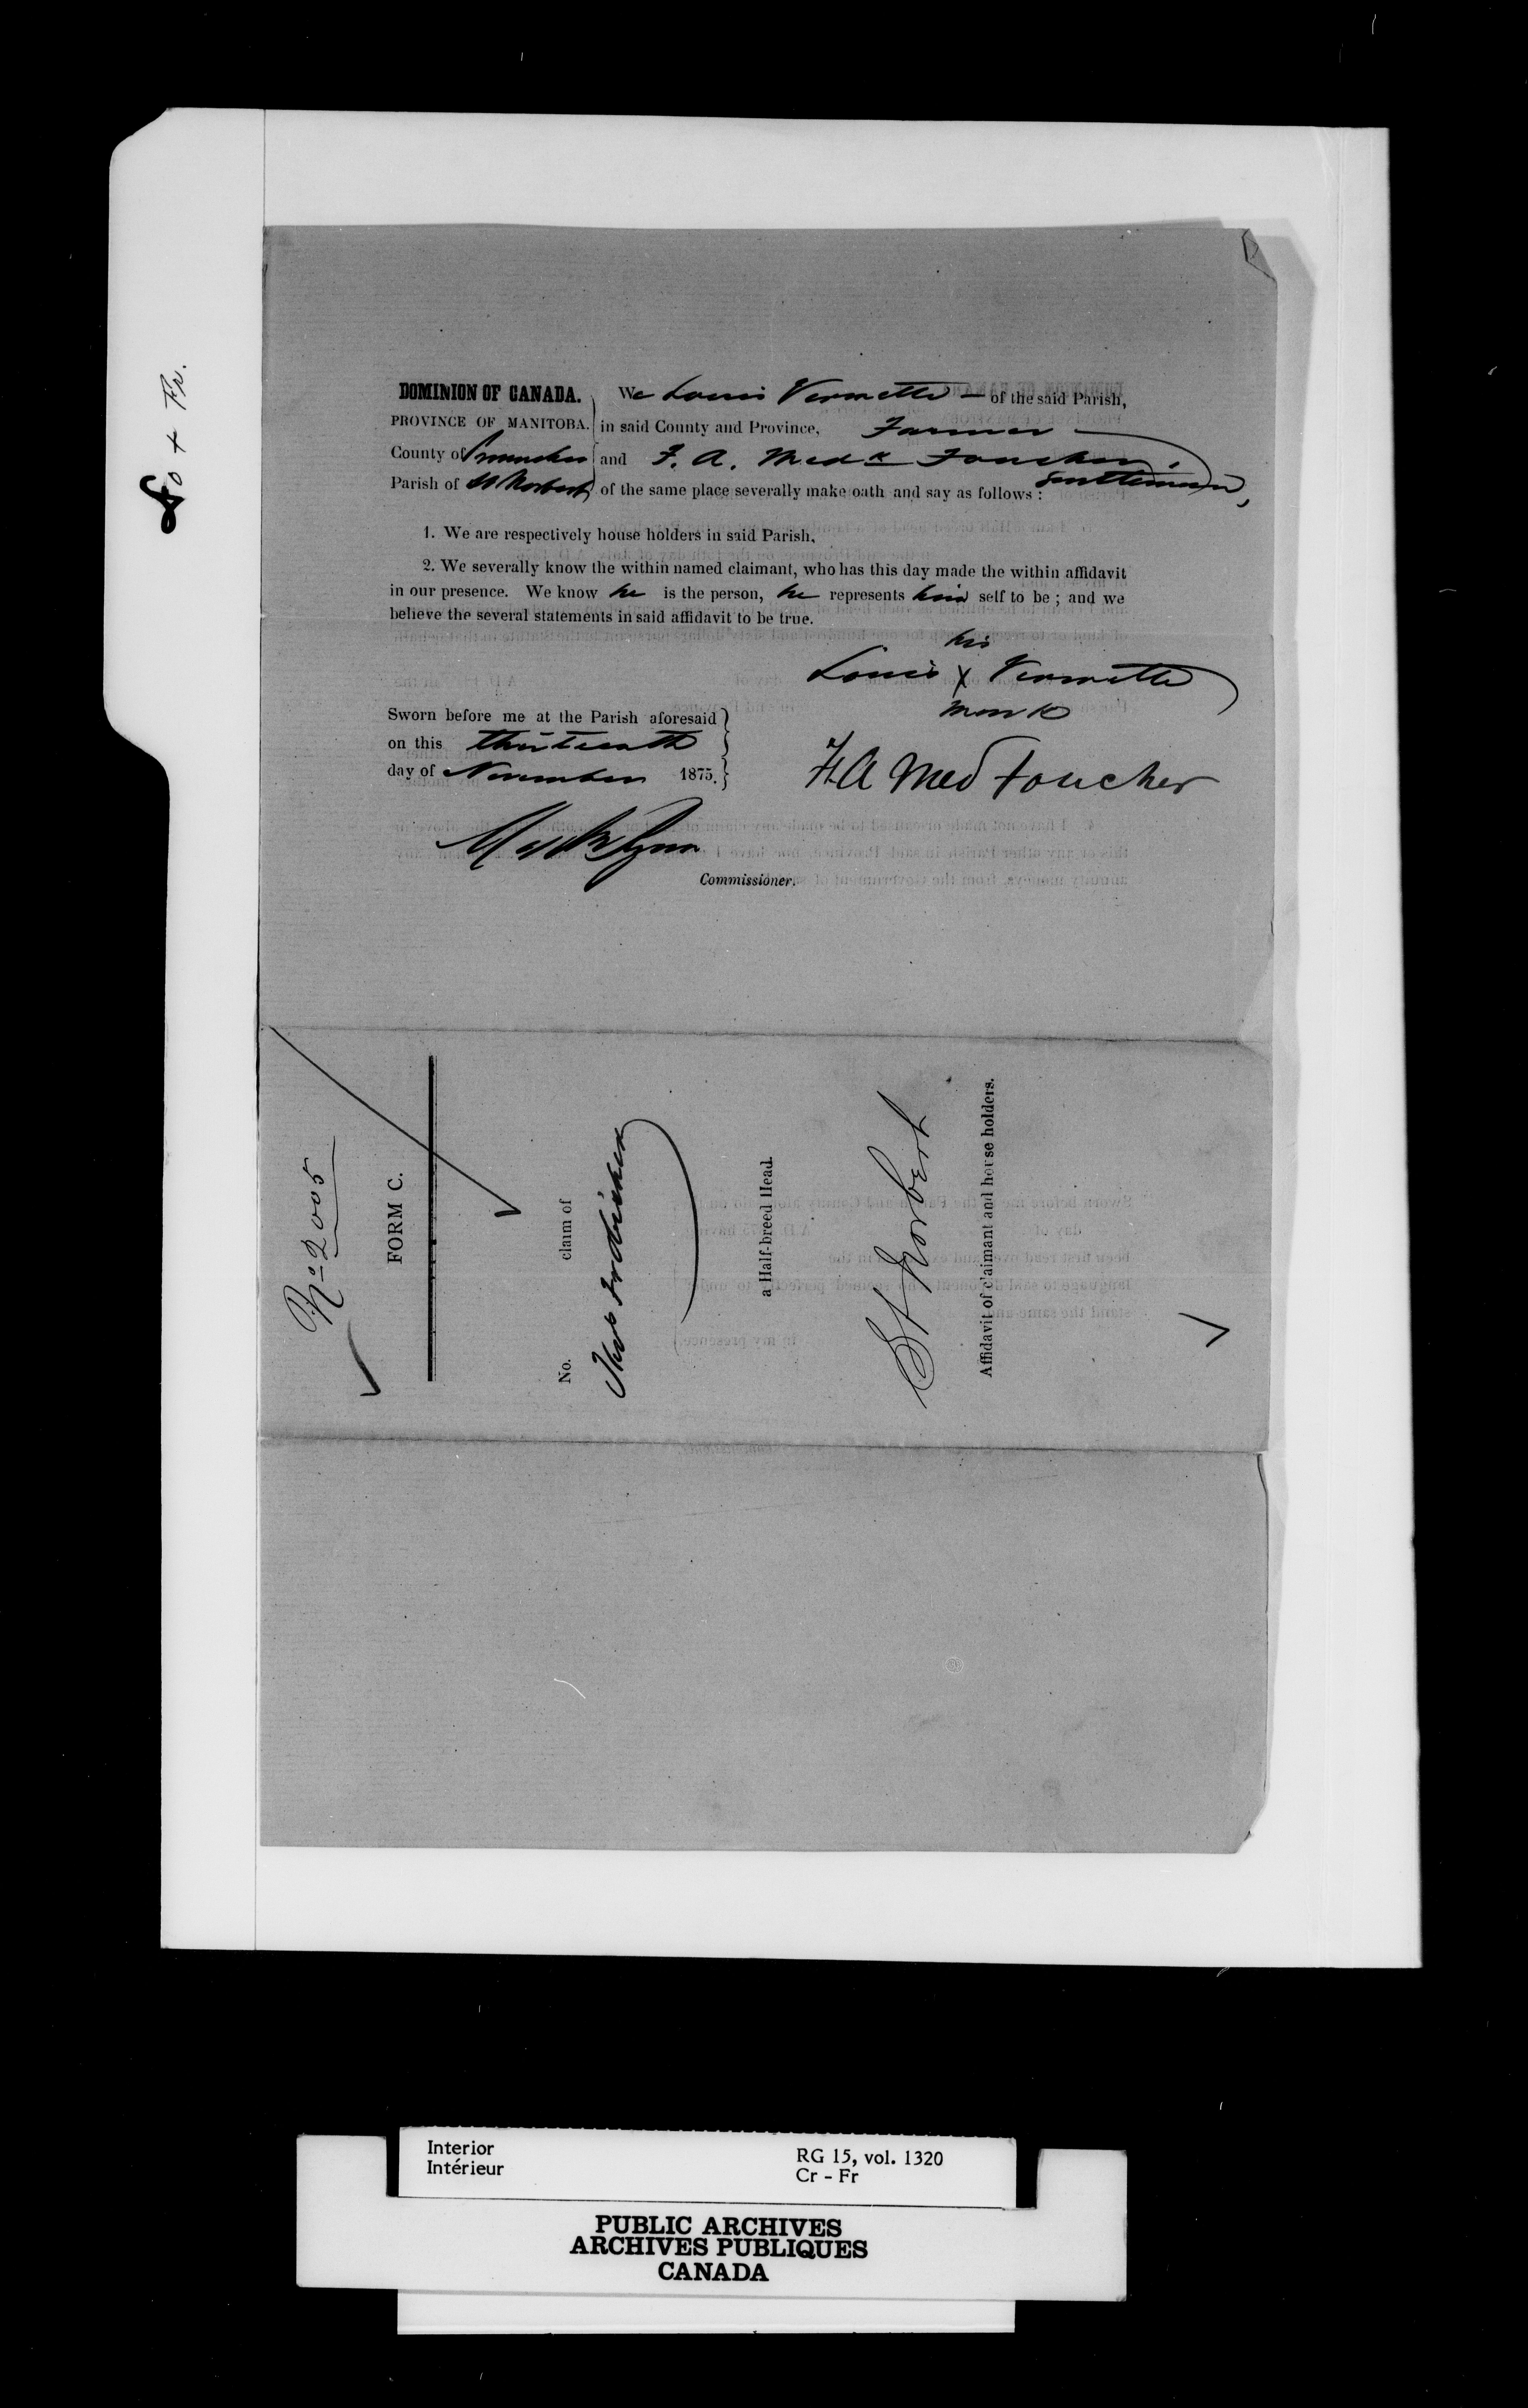 Fo + Fr.
DOMINION OF CANADA.
PROVINCE OF MANITOBA.
County of Provencher
Parish of St Norbert
We Louis Vermette of the said Parish,
in said County and Province, Farmer
and F. A. Med Foucher, Gentleman,
of the same place severally make oath and say as follows:
1. We are respectively house holders in said Parish,
2. We severally know the within named claimant, who has this day made the within affidavit
in our presence. We know he is the person, he represents him self to be; and we
believe the several statements in said affidavit to be true.
his
Louis X Vermette
mark
Sworn before me at the Parish aforesaid
on this thirteenth
day of November 1875.
F.A Med Foucher
Commissioner.
No 2005
FORM C.
No. claim of
a Half-breed Head.
St Norbert
Affidavit of claimant and house holders.
Interior
Intérieur
RG 15, vol. 1320
Cr - Fr
PUBLIC ARCHIVES
ARCHIVES PUBLIQUES
CANADA